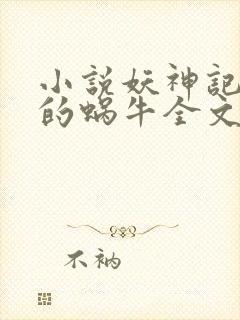 小說妖神記
的蝸牛全文
不衲